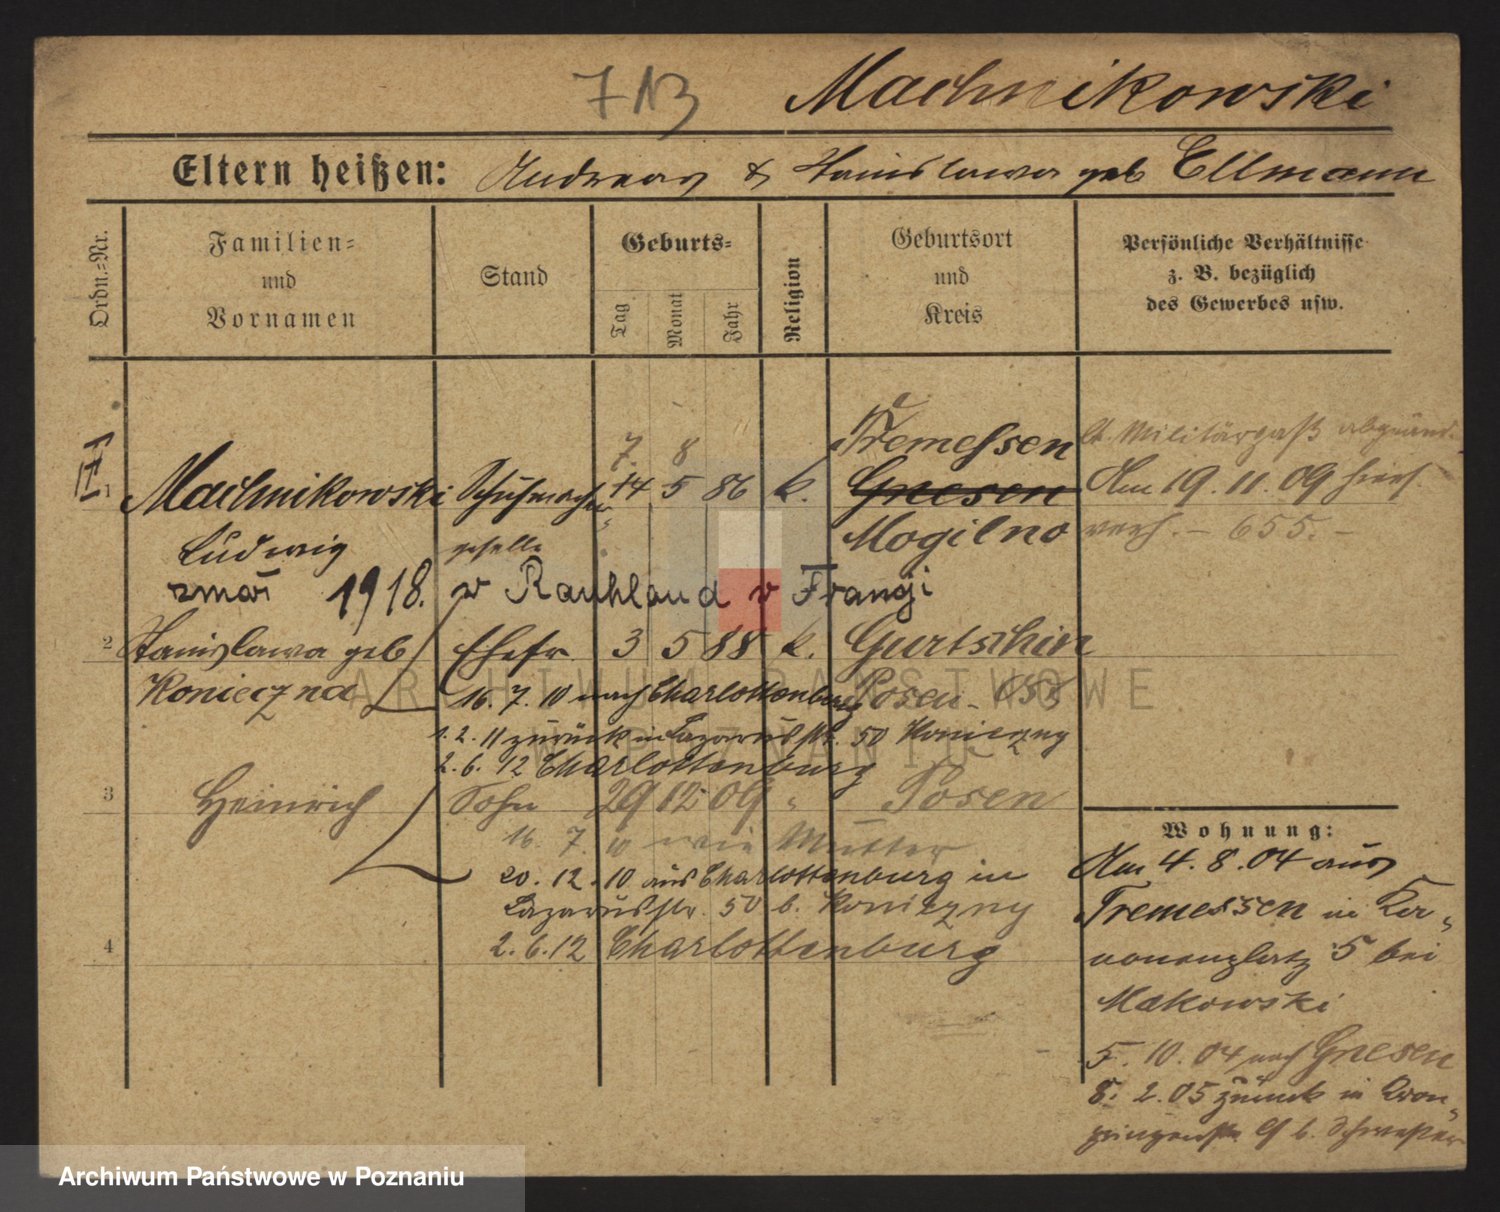 713 Machnikowski
Eltern heißen: Andreas & Stanislawa geb Ellmann
Ordn.=Nr.
Familien=
und
Vornamen
Stand
Geburts=
Tag
Monat
Jahr
Religion
Geburtsort
und
Kreis
Persönliche Verhältnisse
z. B. bezüglich
des Gewerbes usw.
7. 8
Tremessen
lt. Militärpaß
1 Machnikowski Schuhmacher 14 5 86 k. Gnesen
Am 19. 11. 09
Ludwig geselle Mogilno
verh. – 655. –
zmarł 1918. w Rauhland v Frangi
2 Stanislawa geb Ehefr. 3 5 88 k. Gurtschin
Konieczna 16. 7. 10 nach Charlottenburg Posen
1. 2. 11 zurück in Lazarusstr. 50 Konieczny
2. 6. 12 Charlottenburg
3 Heinrich Sohn 29 12 09 " Posen
16. 7. 10 wie Mutter
20. 12. 10 aus Charlottenburg in
Lazarusstr. 50 b. Konieczny
4 2. 6. 12 Charlottenburg
Wohnung:
Am 4. 8. 04 aus
Tremessen in
5 bei
Makowski
5. 10. 04 nach Gnesen
8. 2. 05 zurück in Kron-
prinzenstr. b. Schwester
ARCHIWUM PAŃSTWOWE
W POZNANIU
Archiwum Państwowe w Poznaniu